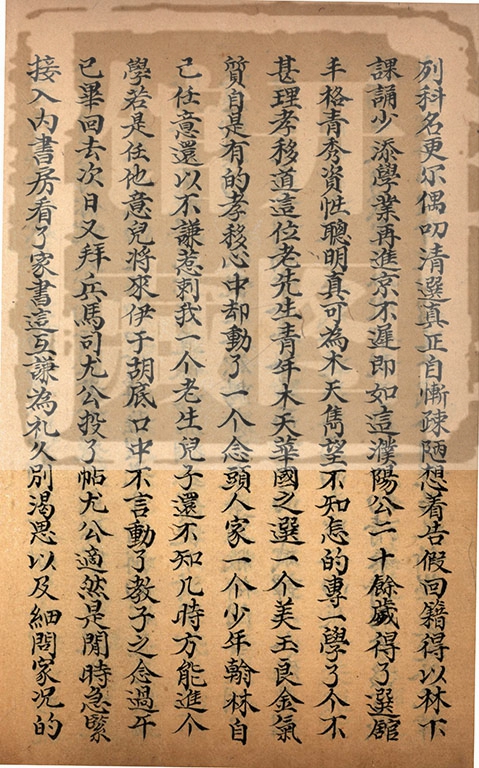 列科名更尔偶叨清選真正自慚疎陋想着告假回籍得以林下
課誦少添學業再進京不遲即如這濮陽公二十餘歲得了選舘
丰格青秀資性聰明真可為木天雋望不知怎的專一學了个不
甚理孝移道這位老先生青年木天華國之選一个美玉良金氣
質自是有的孝移心中却動了一个念頭人家一个少年翰林自
己任意還以不謙惹刺我一个老生兒子還不知几時方能進个
學若是任他意兒將來伊于胡底口中不言動了教子之念過午
已畢回去次日又拜兵馬司尤公投了帖尤公適然是閒時急緊
接入內書房看了家書這互謙為礼久別渴思以及細問家况的